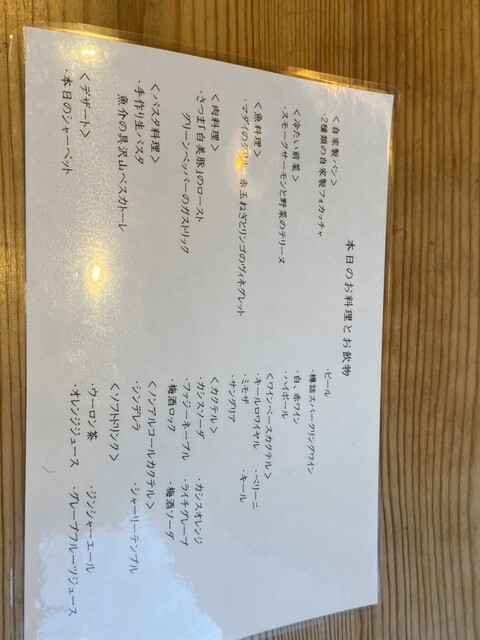 本日のお料理とお飲物
<自家製パン>
・2種類の自家製フォカッチャ
<冷たい前菜>
・スモークサーモンと野菜のテリーヌ
<魚料理>
・マダイのグリル 赤玉ねぎとリンゴのヴィネグレット
<肉料理>
・さつま「白美豚」のロースト
グリーンペッパーのガストリック
<パスタ料理>
・手作り生パスタ
魚介の具沢山ペスカトーレ
<デザート>
・本日のシャーベット
・ビール
・樽詰スパークリングワイン
・白、赤ワイン
・ハイボール
<ワインベースカクテル>
・キールロワイヤル ・ベリーニ
・ミモザ ・キール
・サングリア
<カクテル>
・カシスソーダ ・カシスオレンジ
・ファジーネーブル ・ライチグレープ
・梅酒ロック ・梅酒ソーダ
<ノンアルコールカクテル>
・シンデレラ ・シャーリーテンプル
<ソフトドリンク>
・ウーロン茶 ・ジンジャーエール
・オレンジジュース ・グレープフルーツジュース